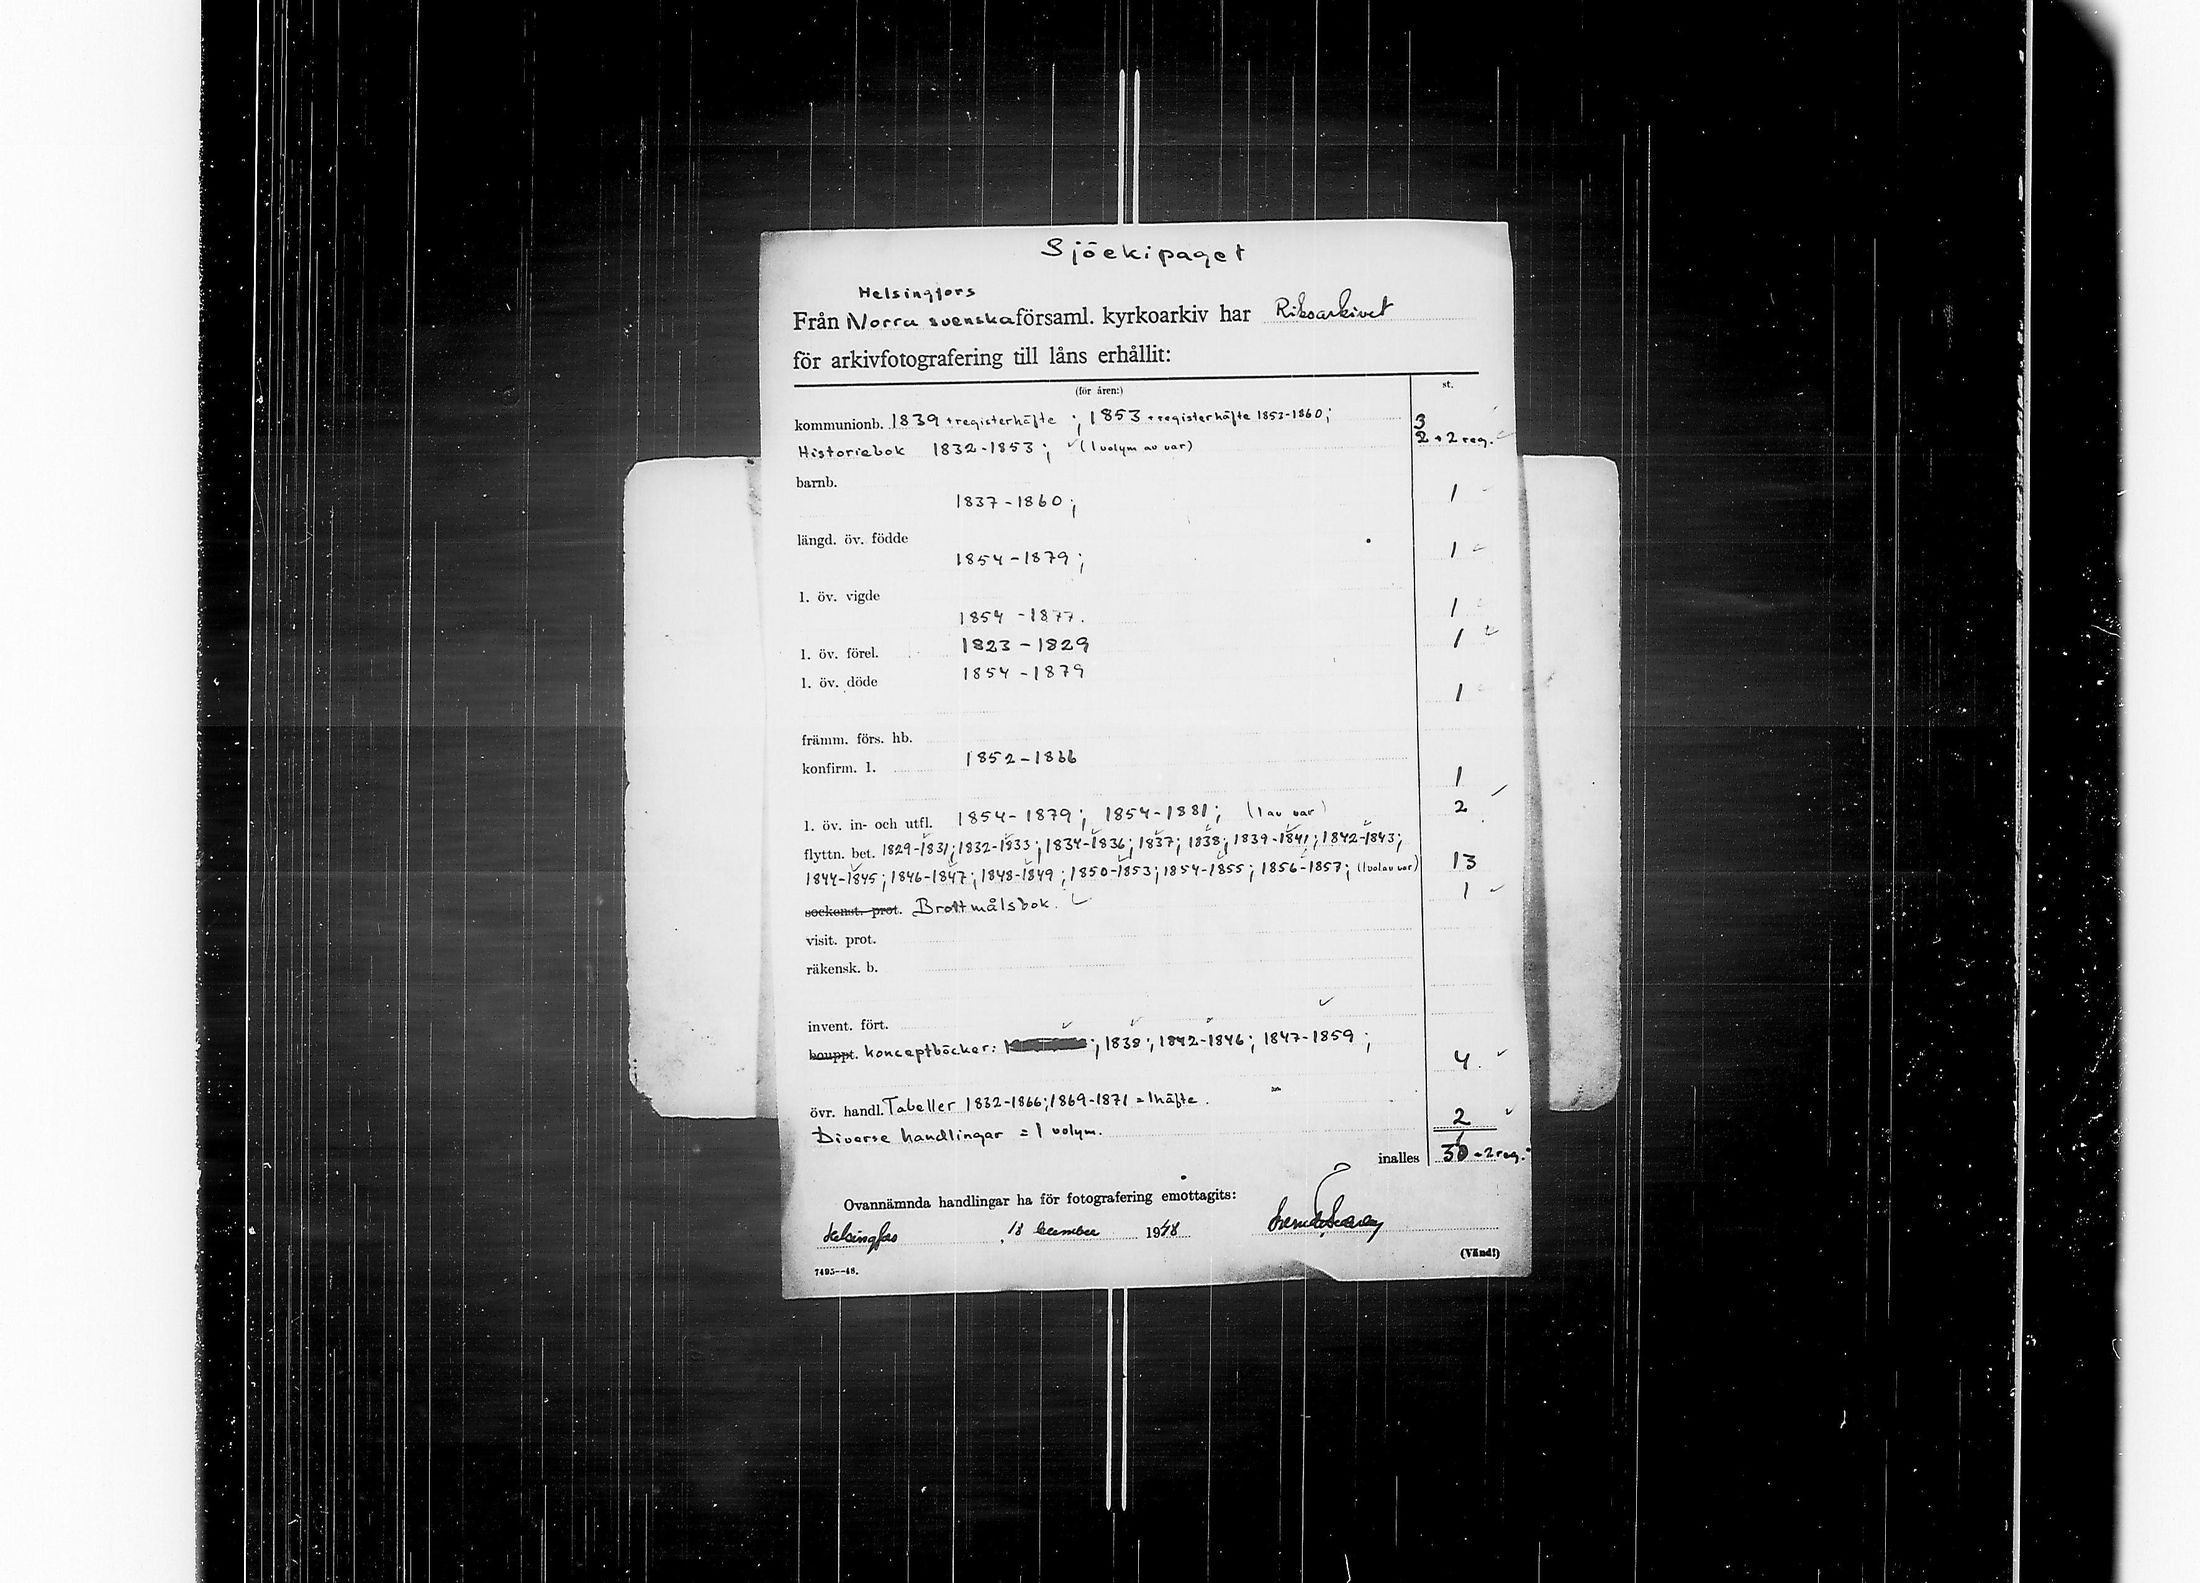 Sjöekipaget
Helsingfors
Från Norra svenska församl. kyrkoarkiv har Riksarkivet
för arkivfotografering till låns erhållit:
(för åren:) st.
kommunionb. 1839 + registerhäfte ; 1853 + registerhäfte 1853-1860; 3
2 + 2 reg.
Historiebok 1832-1853 ; (1 volym av var)
barnb.
1837-1860 ; 1
längd. öv. födde
1854-1879 ; 1
l. öv. vigde
1854-1877. 1
l. öv. förel. 1823-1829 1
l. öv. döde 1854-1879
1
främm. förs. hb.
konfirm. l. 1852-1866
1
l. öv. in- och utfl. 1854-1879 ; 1854-1881 ; (1 av var) 2
flyttn. bet. 1829-1831; 1832-1833; 1834-1836; 1837; 1838; 1839-1841; 1842-1843;
1844-1845; 1846-1847; 1848-1849; 1850-1853; 1854-1855; 1856-1857; (1 vol av var) 13
sockenst. prot. Brottmålsbok. 1
visit. prot.
räkensk. b.
invent. fört.
bouppt. konceptböcker: ; 1838; 1842-1846; 1847-1859 ;
4
övr. handl. Tabeller 1832-1866; 1869-1871 = 1 häfte.
Diverse handlingar = 1 volym. 2
inalles 36 + 2 reg.
Ovannämnda handlingar ha för fotografering emottagits:
Helsingfors , 18 december 1948
(Vänd!)
7495—48.